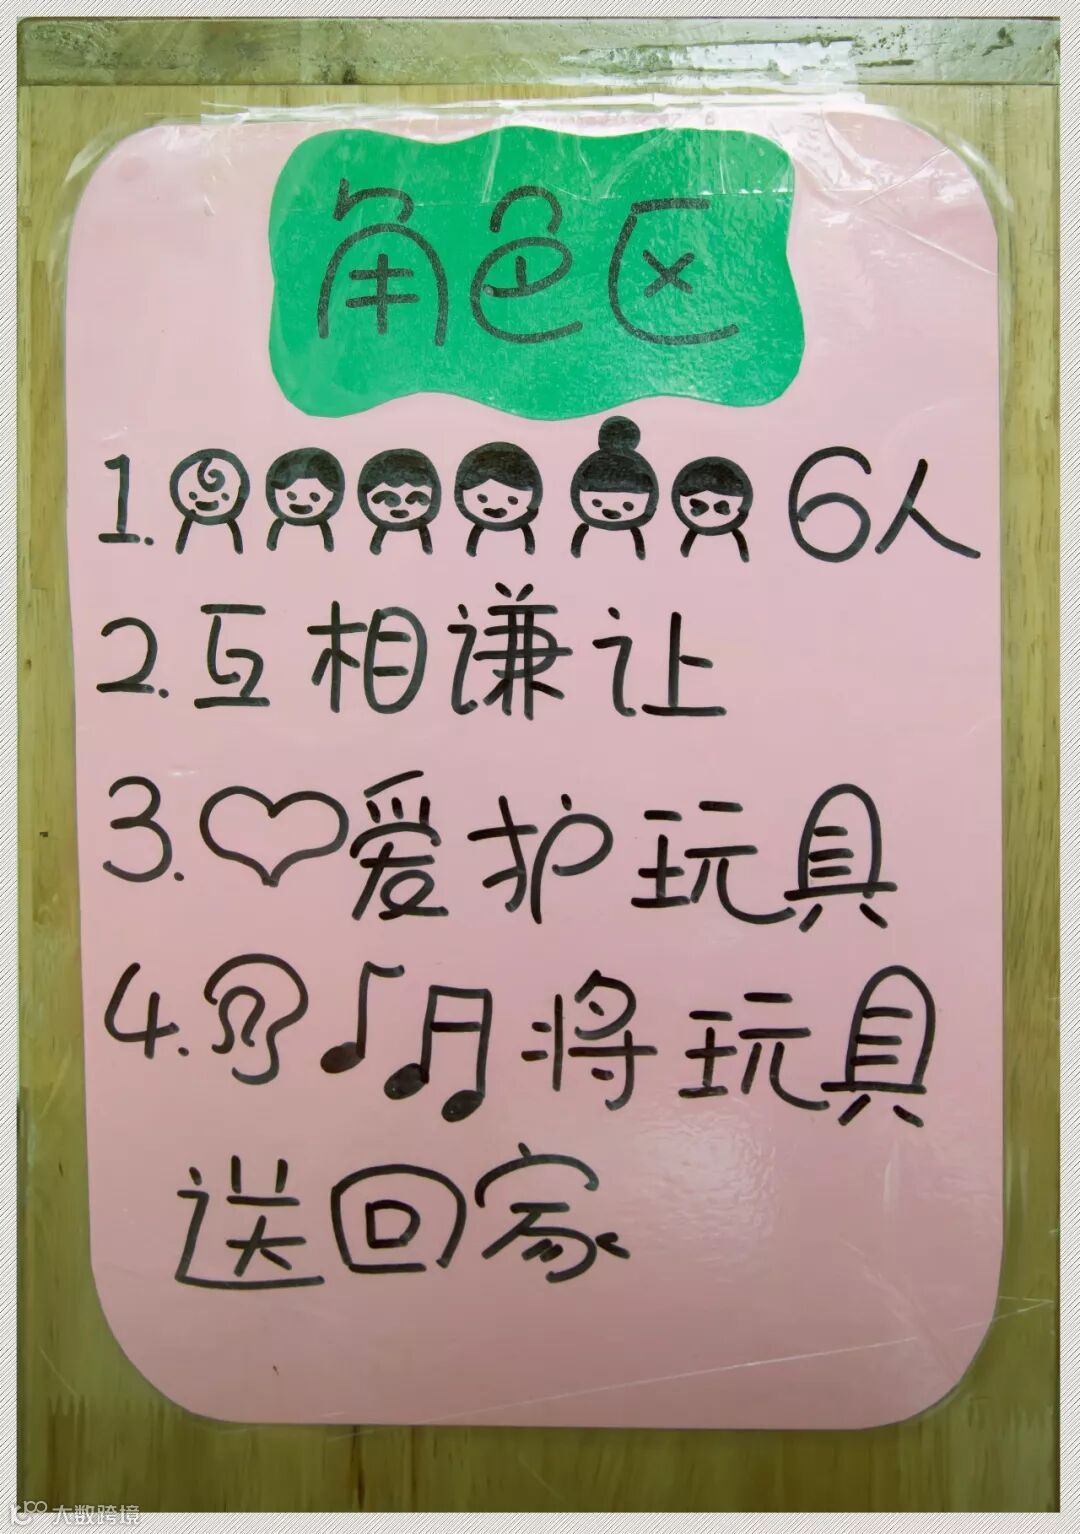 角色区
1. 6人
2.互相谦让
3.爱护玩具
4.将玩具
送回家
大数跨境